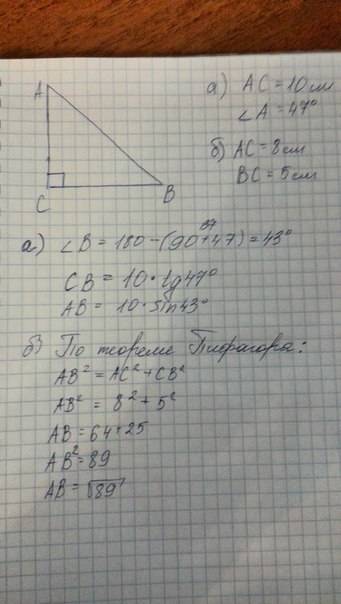 A
C
B
а) AC = 10 см
∠A = 47°
б) AC = 8 см
BC = 5 см
а) ∠B = 180 - (90 + 47) = 43°
CB = 10 · tg 47°
AB = 10 · sin 43°
б) По теореме Пифагора:
AB² = AC² + CB²
AB² = 8² + 5²
AB = 64 + 25
AB² = 89
AB = √89